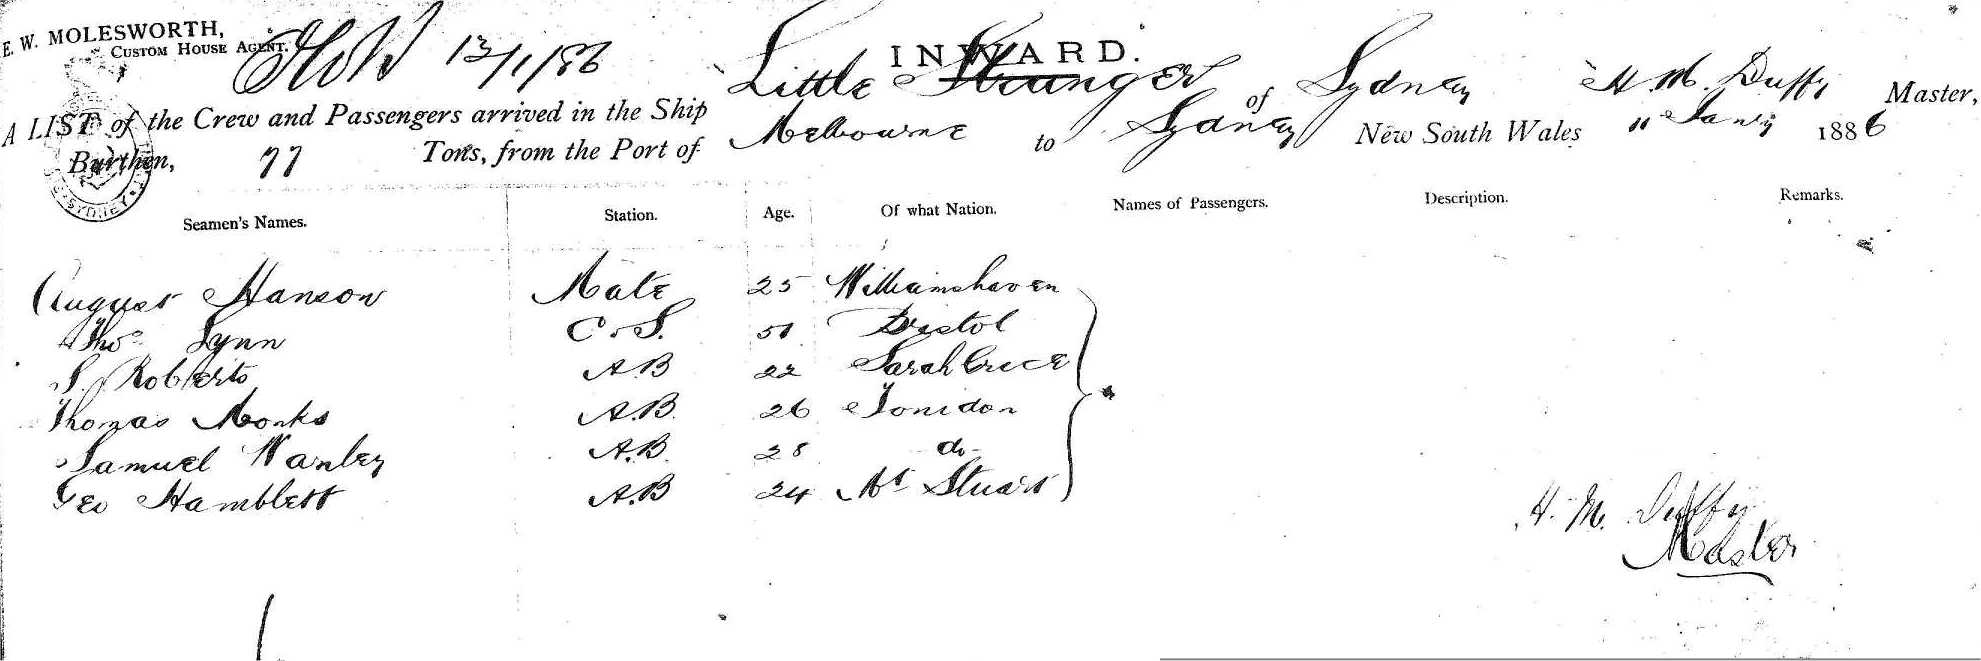 E. W. MOLESWORTH,
CUSTOM HOUSE AGENT.
13/1/86
INWARD.
A LIST of the Crew and Passengers arrived in the Ship Little Stranger of Sydney H. M. Duffy Master,
Burthen, 77 Tons, from the Port of Melbourne to Sydney New South Wales 11 Jany 1886
SYDNEY
Seamen's Names. Station. Age. Of what Nation. Names of Passengers. Description. Remarks.
August Hanson Mate 25 Williamshaven
Thos Lynn C. S. 51 Bristol
S. Roberts A.B 22 Sarah Crece
Thomas Monks A.B. 26 Tonidon
Samuel Wanley A.B. 28 do
Geo Hamblett A.B 24 Mt Stuart
H. M. Duffy
Master